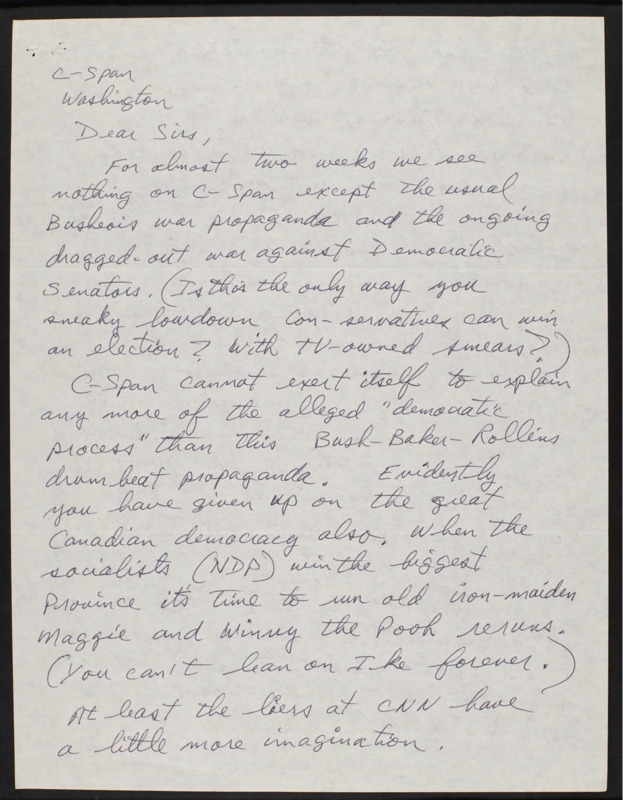 C-Span
Washington
Dear Sirs,
For almost two weeks we see
nothing on C-Span except the usual
Busheois war propaganda and the ongoing
dragged-out war against Democratic
Senators. (Is this the only way you
sneaky lowdown Con-servatives can win
an election? With TV-owned smears?)
C-Span cannot exert itself to explain
any more of the alleged "democratic
process" than this Bush-Baker-Rollins
drumbeat propaganda. Evidently
you have given up on the great
Canadian democracy also. When the
socialists (NDP) win the biggest
Province it's time to run old iron-maiden
Maggie and Winny the Pooh reruns.
(You can't lean on Ike forever.)
At least the liers at CNN have
a little more imagination.